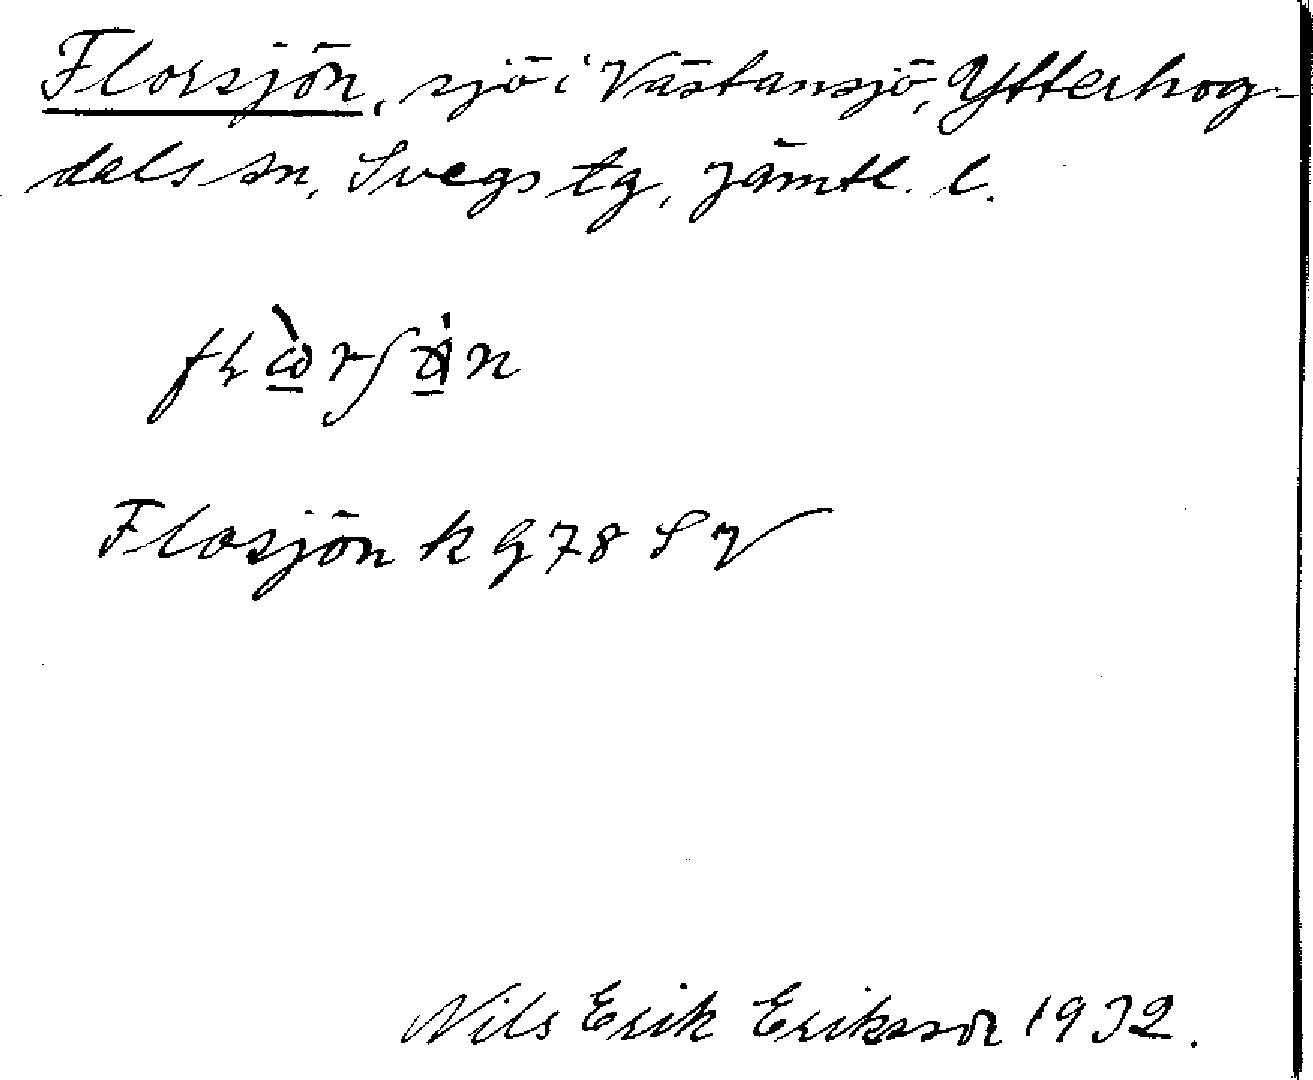 Florsjön, sjö i Västansjö, Ytterhog-
dals sn, Svegs tg, Jämtl. l.
Flosjön k G 78 S V
Nils Erik Eriksson 1932.